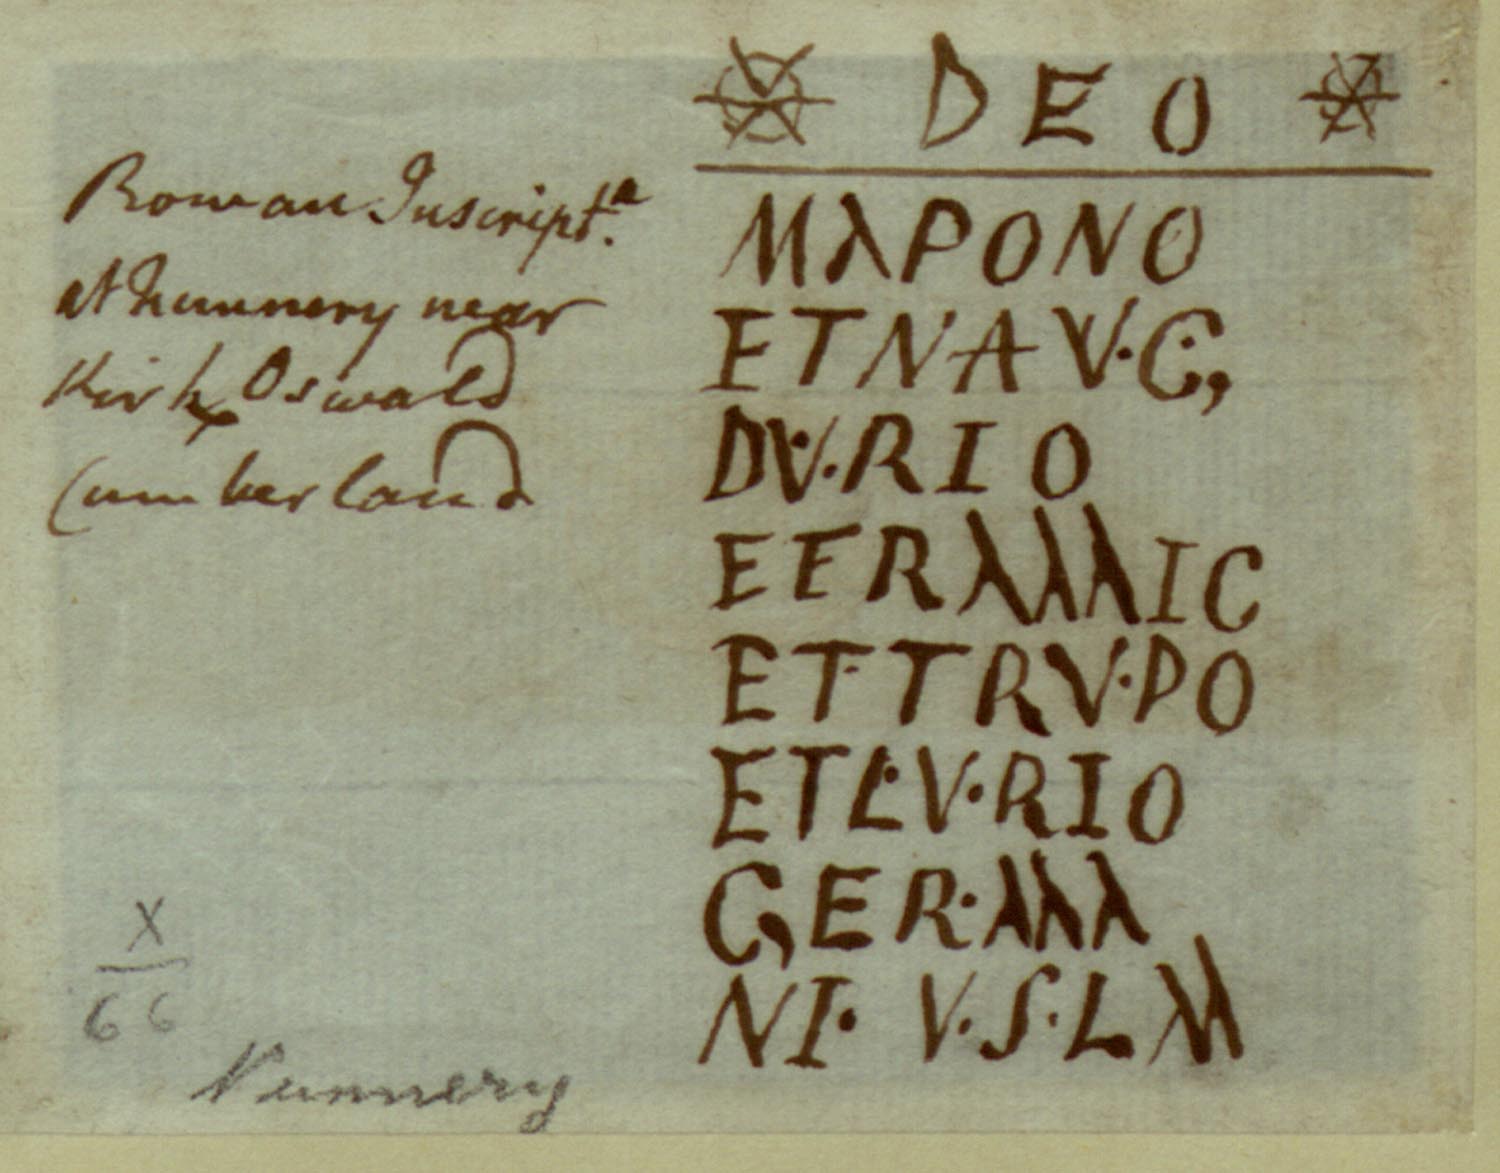 Roman Inscriptn.
at Nunnery near
Kirk Oswald
Cumberland
DEO
MAPONO
ETN·AV·G,
DV·RIO
EERAMIC
ET·TRV·PO
ETLV·RIO
G,ER·MA
NI· V·S·LM
X
66
Nunnery